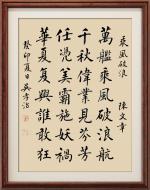 乘風破浪
陳文章
萬艦乘風破浪航
千秋偉業見芬芳
任憑美霸施妖禍
華夏復興誰敢狂
癸卯夏日吳